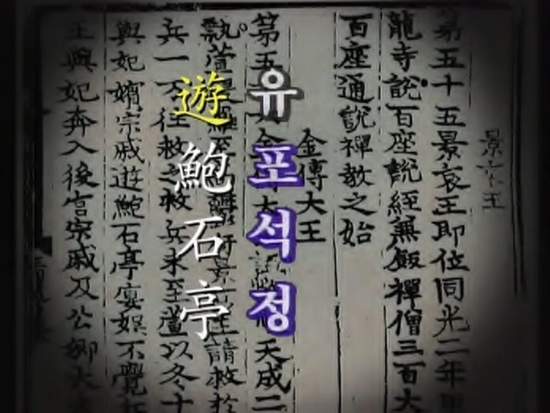 유포석정
遊鮑石亭
景 王
第五十五景哀王即位同光二年
龍寺說百座說經兼飯禪僧三百大
百座通說禪教之始
金傅大王
第五 天成二
請救於
兵一万往救 救兵未至萱以冬十
與妃嬪宗戚遊鮑石亭宴娛不覺
王與妃奔入後宮宗戚及公卿大